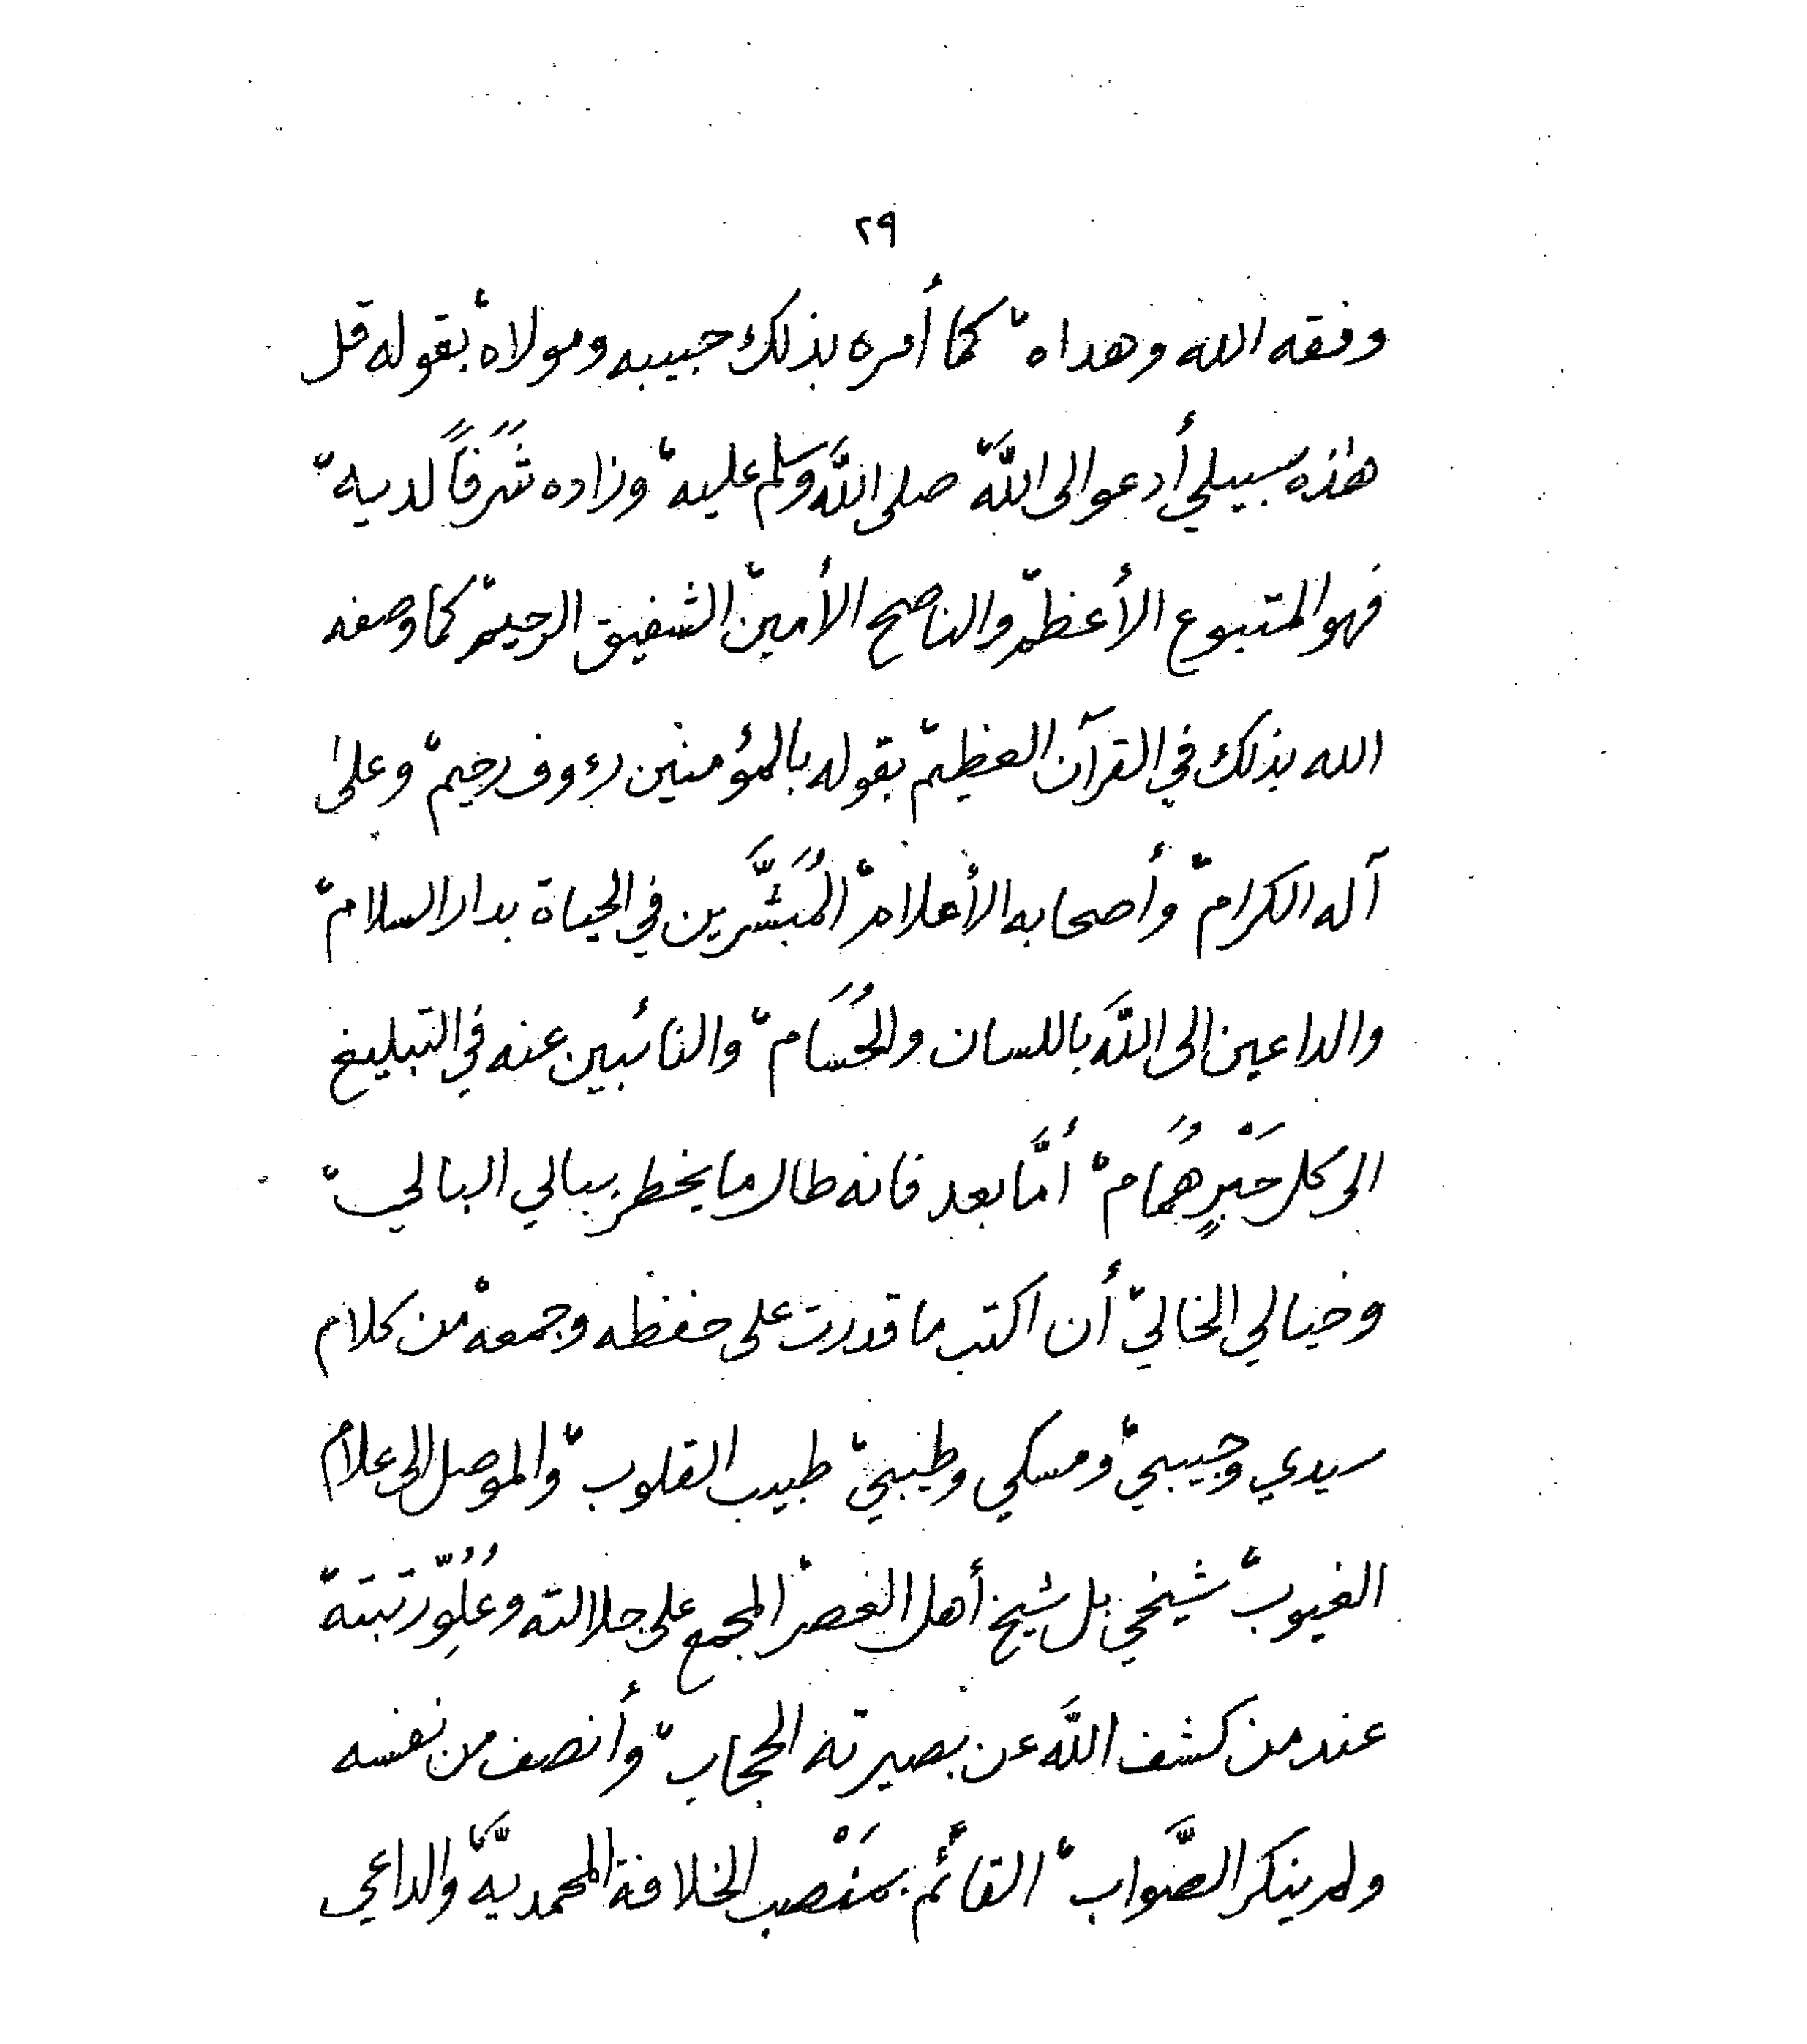 ٢٩
وفقه الله وهداه ، كما أمره بذلك حبيبه ومولاه ، بقوله قل
هذه سبيلي أدعو الى اللَّه ، صلى اللَّه وسلم عليه ، وزاده شَرَفاً لديه ،
فهو المتبوع الأعظم ، والناصح الأمين ، الشفيق الرحيم ، كما وصفه
الله بذلك في القرآن العظيم ، بقوله بالمؤمنين رءوف رحيم ، وعلى
آله الكرام ، وأصحابه الأعلام ، المُبَشَّرين في الحياة بدار السلام ،
والداعين الى اللَّه باللسان والحُسَام ، والنائبين عنه في التبليغ
الى كل حَبْرٍ هُمَام ، أمَّا بعد فانه طال ما يخطر ببالي البالي ،
وخيالي الخالي ، أن اكتب ما قدرت على حفظه وجمعه ، من كلام
سيدي وحبيبي ، ومسكي وطيبي ، طبيب القلوب ، والموصل الى علام
الغيوب ، شيخي بل شيخ أهل العصر ، المجمع على جلالته وعُلُوِّ رتبته ،
عند من كشف اللَّه عن بصيرته الحجاب ، وأنصف من نفسه
ولم ينكر الصَّواب ، القائم بمَنْصب الخلافة المحمديَّه ، والداعي